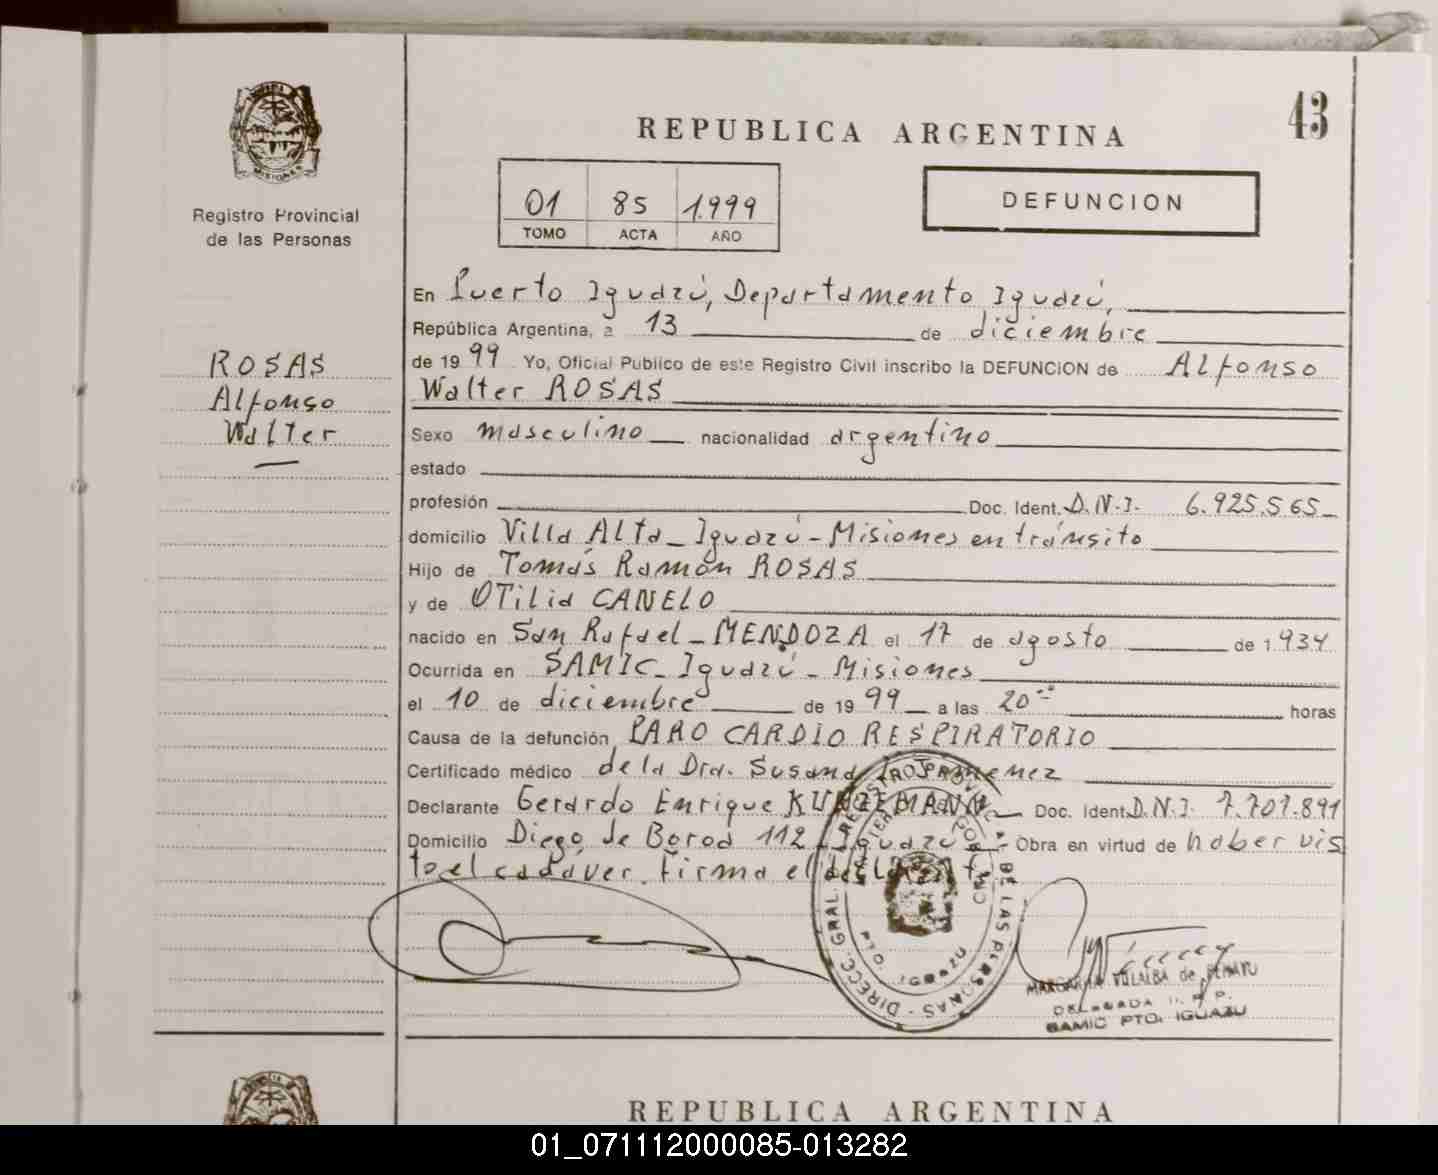 43
REPUBLICA ARGENTINA
MISIONES
Registro Provincial
de las Personas
01 85 1.999
TOMO ACTA AÑO
DEFUNCION
ROSAS
Alfonso
Walter
En Puerto Iguazú, Departamento Iguazú,
República Argentina, a 13 de diciembre
de 1999 Yo, Oficial Publico de este Registro Civil inscribo la DEFUNCION de Alfonso
Walter ROSAS
Sexo masculino nacionalidad argentino
estado
profesión Doc. Ident. D.N.I. 6.925.565
domicilio Villa Alta - Iguazú - Misiones en tránsito
Hijo de Tomás Ramón ROSAS
y de OTilia CANELO
nacido en San Rafael - MENDOZA el 17 de agosto de 1934
Ocurrida en SAMIC - Iguazú - Misiones
el 10 de diciembre de 1999 a las 20 horas
Causa de la defunción PARO CARDIO RESPIRATORIO
Certificado médico de la Dra. Susana Jimenez
Declarante Gerardo Enrique Doc. Ident. D.N.I. 7.707.891
Domicilio Diego de Boroa 112 - Iguazú Obra en virtud de haber vis
to el cadáver. Firma el declarante
DIRECC. GRAL. REGISTRO PROVINCIAL DE LAS PERSONAS
PTO. IGUAZU
MARGARITA VILLALBA de
DELEGADA R. P. P.
SAMIC PTO. IGUAZU
REPUBLICA ARGENTINA
01_071112000085-013282